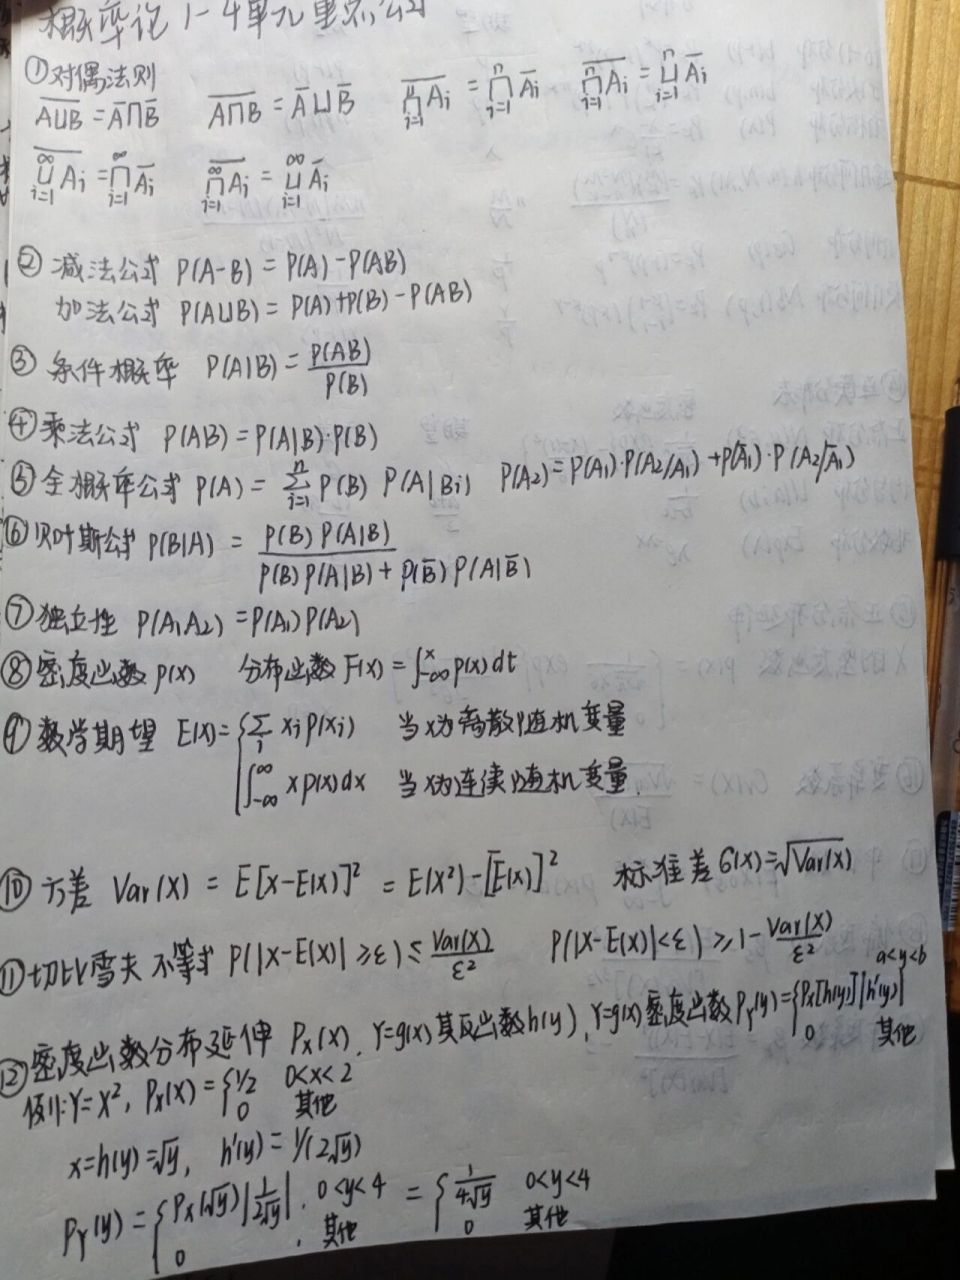 概率论1-4单元重点公式
①对偶法则
\overline{A∪B} = \bar{A}∩\bar{B}  \overline{A∩B} = \bar{A}∪\bar{B}  \overline{∩_{i=1}^{n} A_i} = ∩_{i=1}^{n} \bar{A_i}  \overline{∩_{i=1}^{n} A_i} = ∪_{i=1}^{n} \bar{A_i}
\overline{∪_{i=1}^{∞} A_i} = ∩_{i=1}^{∞} \bar{A_i}  \overline{∩_{i=1}^{∞} A_i} = ∪_{i=1}^{∞} \bar{A_i}
② 减法公式 P(A-B) = P(A)-P(AB)
加法公式 P(A∪B) = P(A)+P(B)-P(AB)
③ 条件概率 P(A|B) = \frac{P(AB)}{P(B)}
④乘法公式 P(AB) = P(A|B)·P(B)
⑤全概率公式 P(A) = \sum_{i=1}^{n} P(B) P(A|Bi)  P(A2) = P(A1)·P(A2/A1) + P(\bar{A1})·P(A2/\bar{A1})
⑥贝叶斯公式 P(B|A) = \frac{P(B)P(A|B)}{P(B)P(A|B) + P(\bar{B})P(A|\bar{B})}
⑦独立性 P(A1A2) = P(A1)P(A2)
⑧密度函数 p(x)  分布函数 F(x) = ∫_{-∞}^{x} p(x)dt
⑨数学期望 E(X) = { \sum_{i} xi p(xi)  当X为离散随机变量
∫_{-∞}^{∞} x p(x)dx  当X为连续随机变量.
⑩ 方差 Var(X) = E[X-E(X)]² = E(X²)-[E(X)]²  标准差 σ(X) = \sqrt{Var(X)}
⑪切比雪夫不等式 P(|X-E(X)| ≥ε) ≤ \frac{Var(X)}{ε²}  P(|X-E(X)|<ε) ≥ 1-\frac{Var(X)}{ε²}
⑫密度函数分布延伸 Px(x), Y=g(x)其反函数h(y), Y=g(x)密度函数 P_Y(y) = { Px[h(y)]|h'(y)|  a<y<b
0  其他
例:Y=X², Px(x) = { 1/2  0<x<2
0  其他
x=h(y)=√y, h'(y) = 1/(2√y)
P_Y(y) = { Px(√y)|\frac{1}{2√y}|, 0<y<4 = { \frac{1}{4√y}  0<y<4
0  , 其他  0  其他